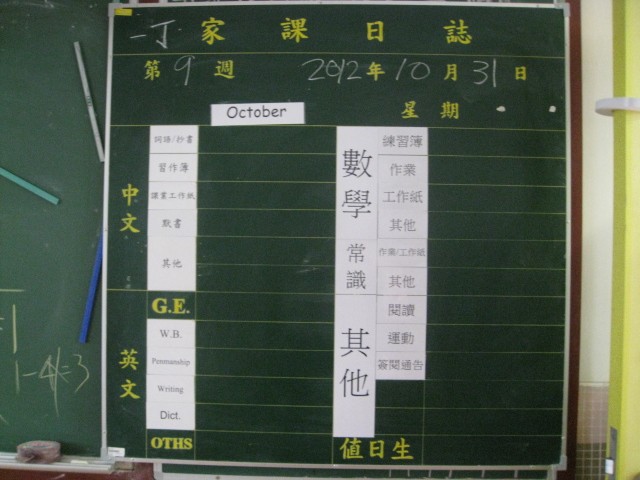 一丁 家課日誌
第9週 2012年10月31日
October 星期
中文
詞語/抄書
習作簿
默書
其他
G.E.
英文
W.B.
Penmanship
Writing
Dict.
OTHS
數學
練習簿
作業
工作紙
其他
常識
作業/工作紙
其他
其他
閱讀
運動
簽閱通告
值日生
1-4=3